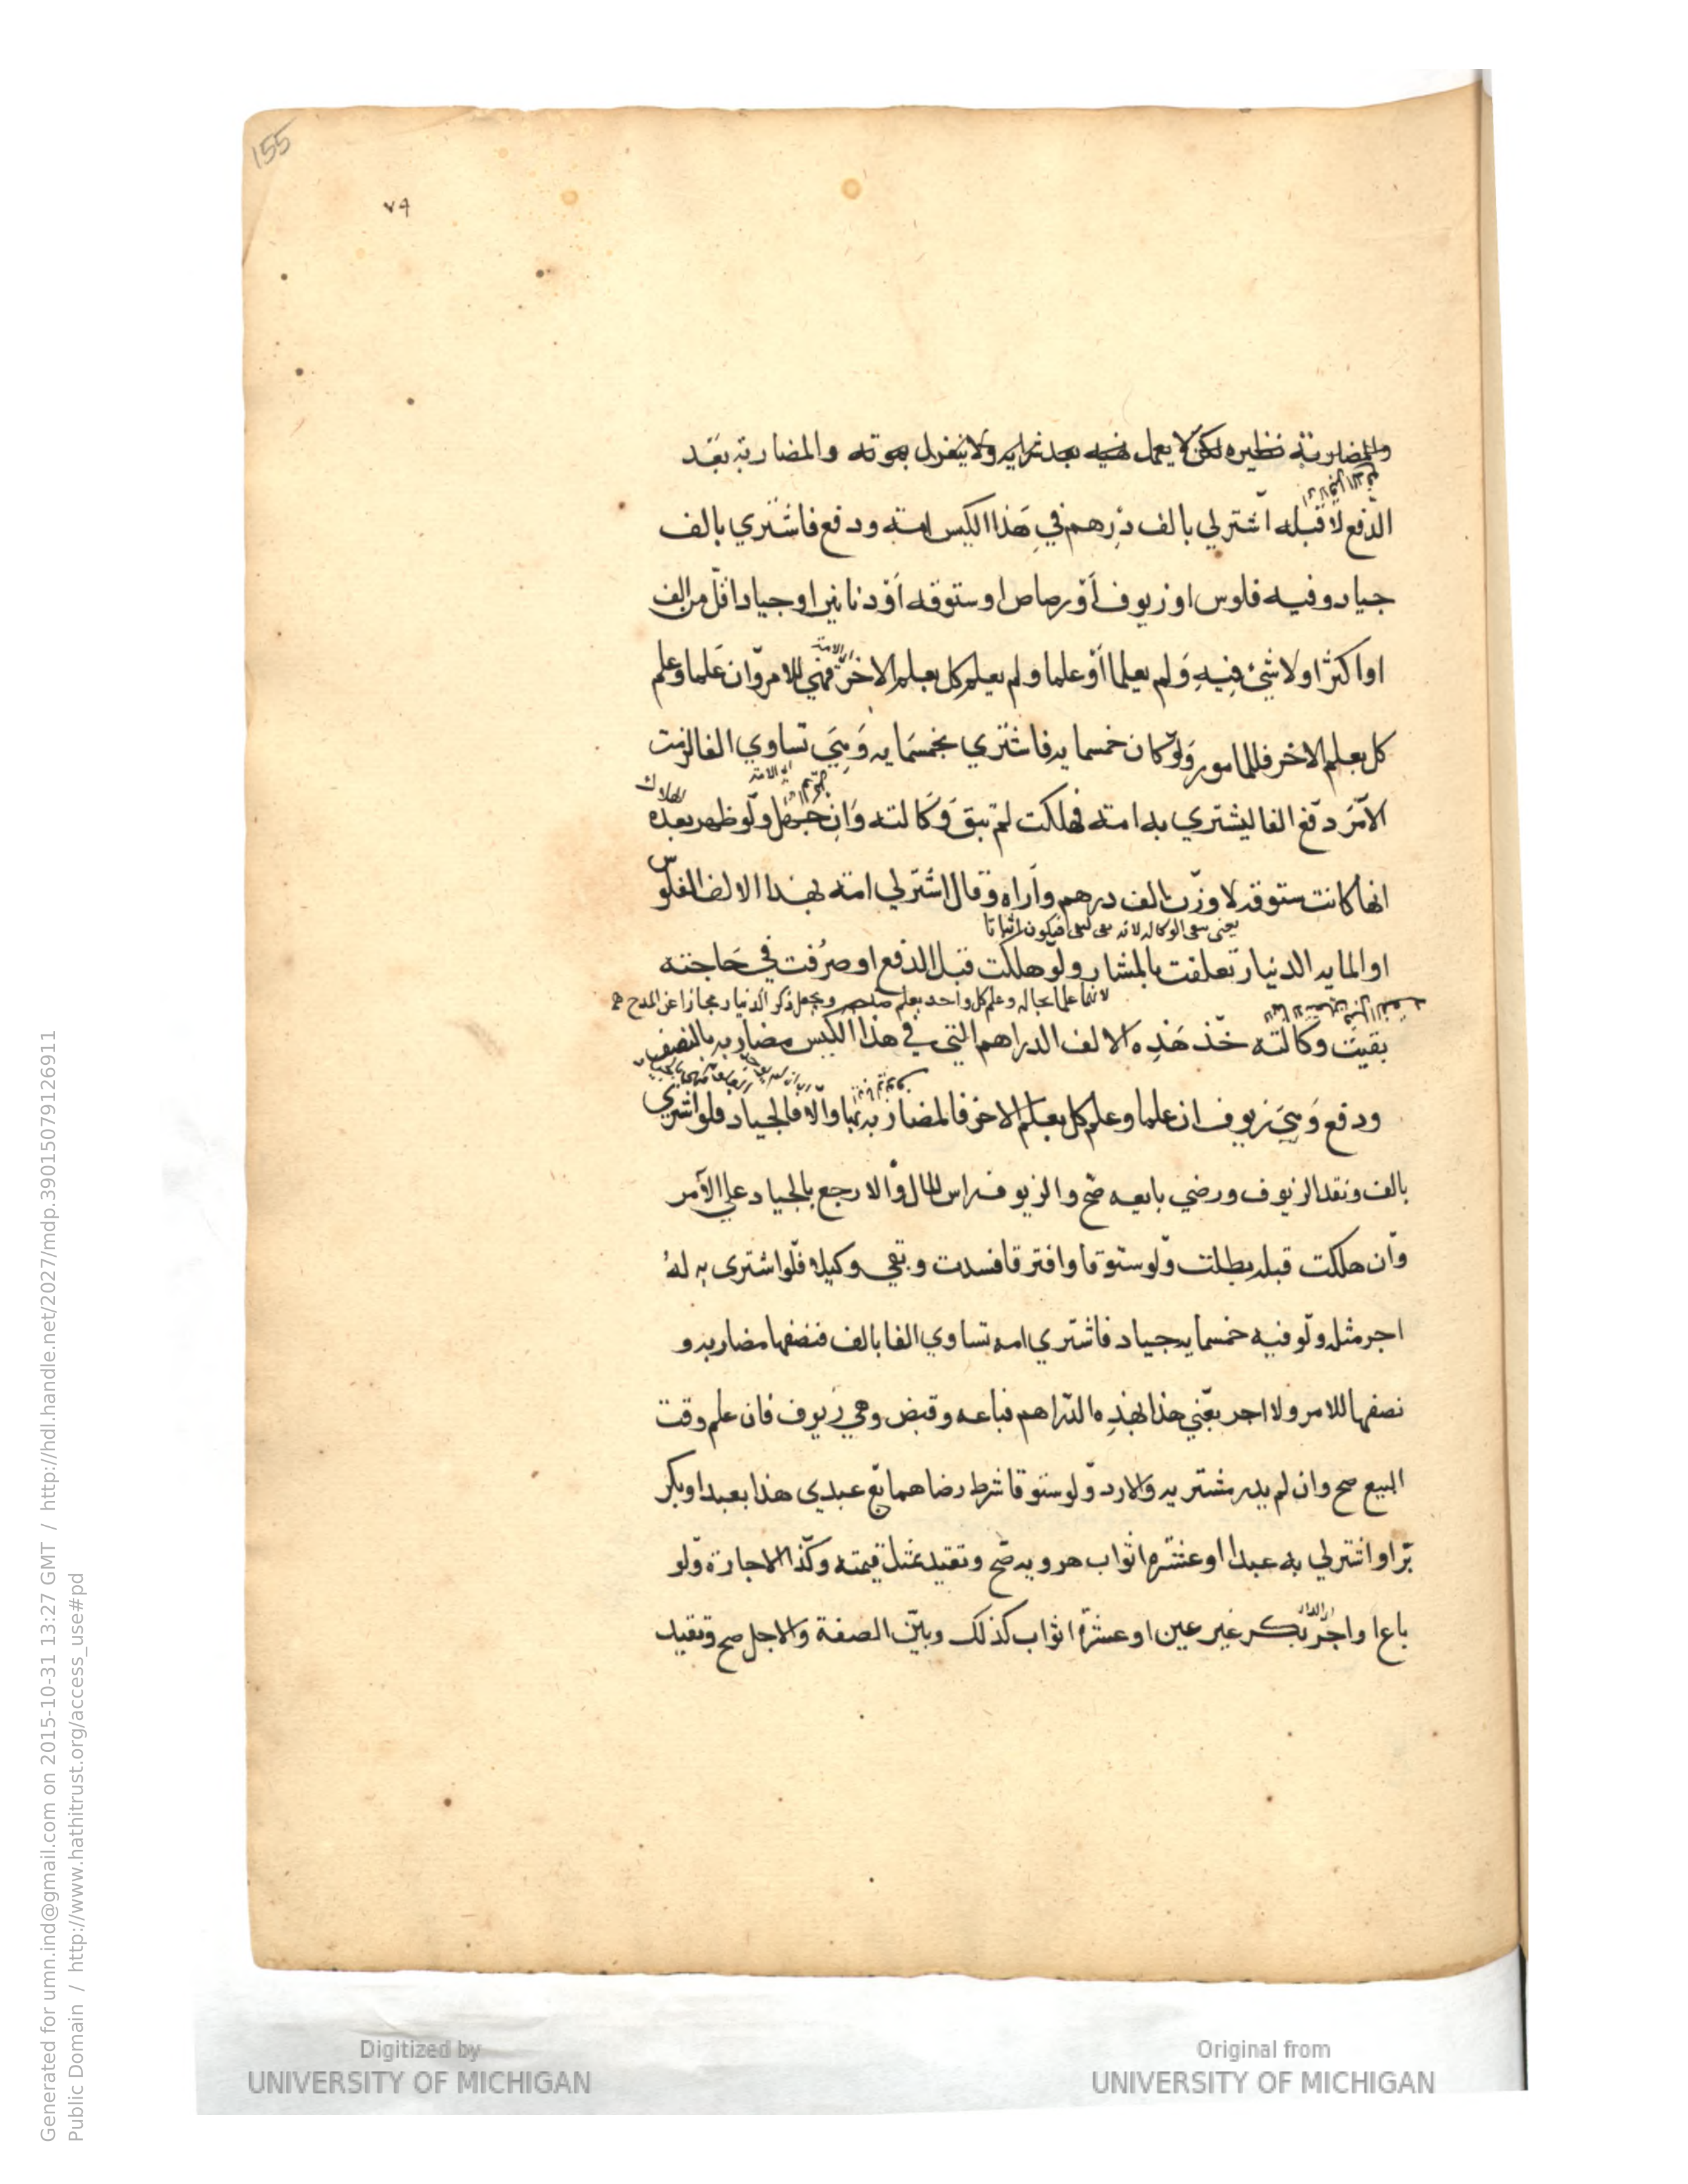 155
٧٩
والمضاربة نظيره لكن لا يعمل نهيه بعد شرايه ولا ينعزل بموته والمضاربة بعد
الدفع لا قبله اشتر لي بالف درهم في هذا الكيس امة ودفع فاشتري بالف
جياد وفيه فلوس او زيوف أو رصاص او ستوقه أو دنانير او جيادا اقل من الف
او اكثر او لا شيئ فيه ولم يعلما أو علما ولم يعلم كل بعلم الاخر فهي للامر وان علما وعلم
الامة
كل بعلم الاخر فللمامور ولو كان خمسمايه فاشتري بخمسمايه وهي تساوي الفا لزمت
الآمر دفع الفا ليشتري به امة فهلكت لم تبق وكالته وان جهل ولو ظهر بعده
الهلاك
انها كانت ستوقه لا وزن بالف درهم واراه وقال اشتر لي امة بهذا الالف الفلوس
يعني الوكاله لانه فيكون اثباتا
او المايه الدنيار تعلقت بالمشار ولو هلكت قبل الدفع او صرفت في حاجته
لانهما علما بحاله وعلم كل واحد بعلم ويجعل ذكر الدنيار مجازا عن
بقيت وكالته خذ هذه الالف الدراهم التي في هذا الكيس مضاربه بالنصف
ودفع وهي زيوف ان علما وعلم كل بعلم الاخر فالمضاربه بها والا فالجياد فلو اشتري
بالف ونقد الزيوف ورضي بايعه صح والزيوف راس المال والا رجع بالجياد علي الآمر
وان هلكت قبله بطلت ولو ستوقا وافترقا فسدت وبقي وكيلا فلو اشترى به له
اجر مثله ولو فيه خمسمايه جياد فاشتري امه تساوي الفا بالف فنصفها مضاربه و
نصفها للامر ولا اجر بعني هذا بهذه الدراهم فباعه وقبض وهي زيوف فان علم وقت
البيع صح وان لم يدر مشتريه والا رد ولو ستوقا شرط رضاهما بع عبدي هذا بعبد او بكر
برا او اشتر لي به عبدا او عشرة اثواب هرويه صح وتقيد بمثل قيمته وكذا الاجارة ولو
باع او اجر بكر غير عين او عشرة اثواب كذلك وبين الصفة والاجل صح وتقيد
الدار
Generated for umn.ind@gmail.com on 2015-10-31 13:27 GMT / http://hdl.handle.net/2027/mdp.39015079126911
Public Domain / http://www.hathitrust.org/access_use#pd
Digitized by
UNIVERSITY OF MICHIGAN
Original from
UNIVERSITY OF MICHIGAN